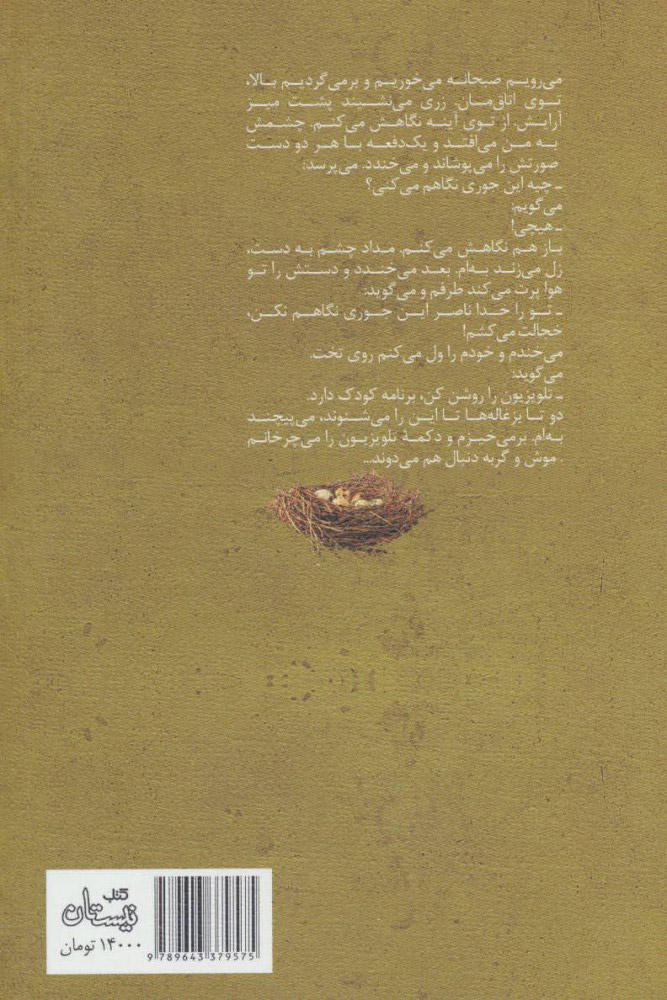 می‌رویم صبحانه می‌خوریم و برمی‌گردیم بالا،
توی اتاق‌مان. زری می‌نشیند پشت میز
آرایش. از توی آینه نگاهش می‌کنم. چشمش
به من می‌افتد و یک‌دفعه با هر دو دست
صورتش را می‌پوشاند و می‌خندد. می‌پرسد:
ـ چیه این جوری نگاهم می‌کنی؟
می‌گویم:
ـ هیچی!
باز هم نگاهش می‌کنم. مداد چشم به دست،
زل می‌زند به‌ام. بعد می‌خندد و دستش را تو
هوا پرت می‌کند طرفم و می‌گوید:
ـ تو را خدا ناصر این جوری نگاهم نکن،
خجالت می‌کشم!
می‌خندم و خودم را ول می‌کنم روی تخت.
می‌گوید:
ـ تلویزیون را روشن کن، برنامه کودک دارد.
دو تا بزغاله‌ها تا این را می‌شنوند، می‌پیچند
به‌ام. برمی‌خیزم و دکمهٔ تلویزیون را می‌چرخانم
. موش و گربه دنبال هم می‌دوند...
کتاب
نیستان
۱۴۰۰۰ تومان
9 789643 379575